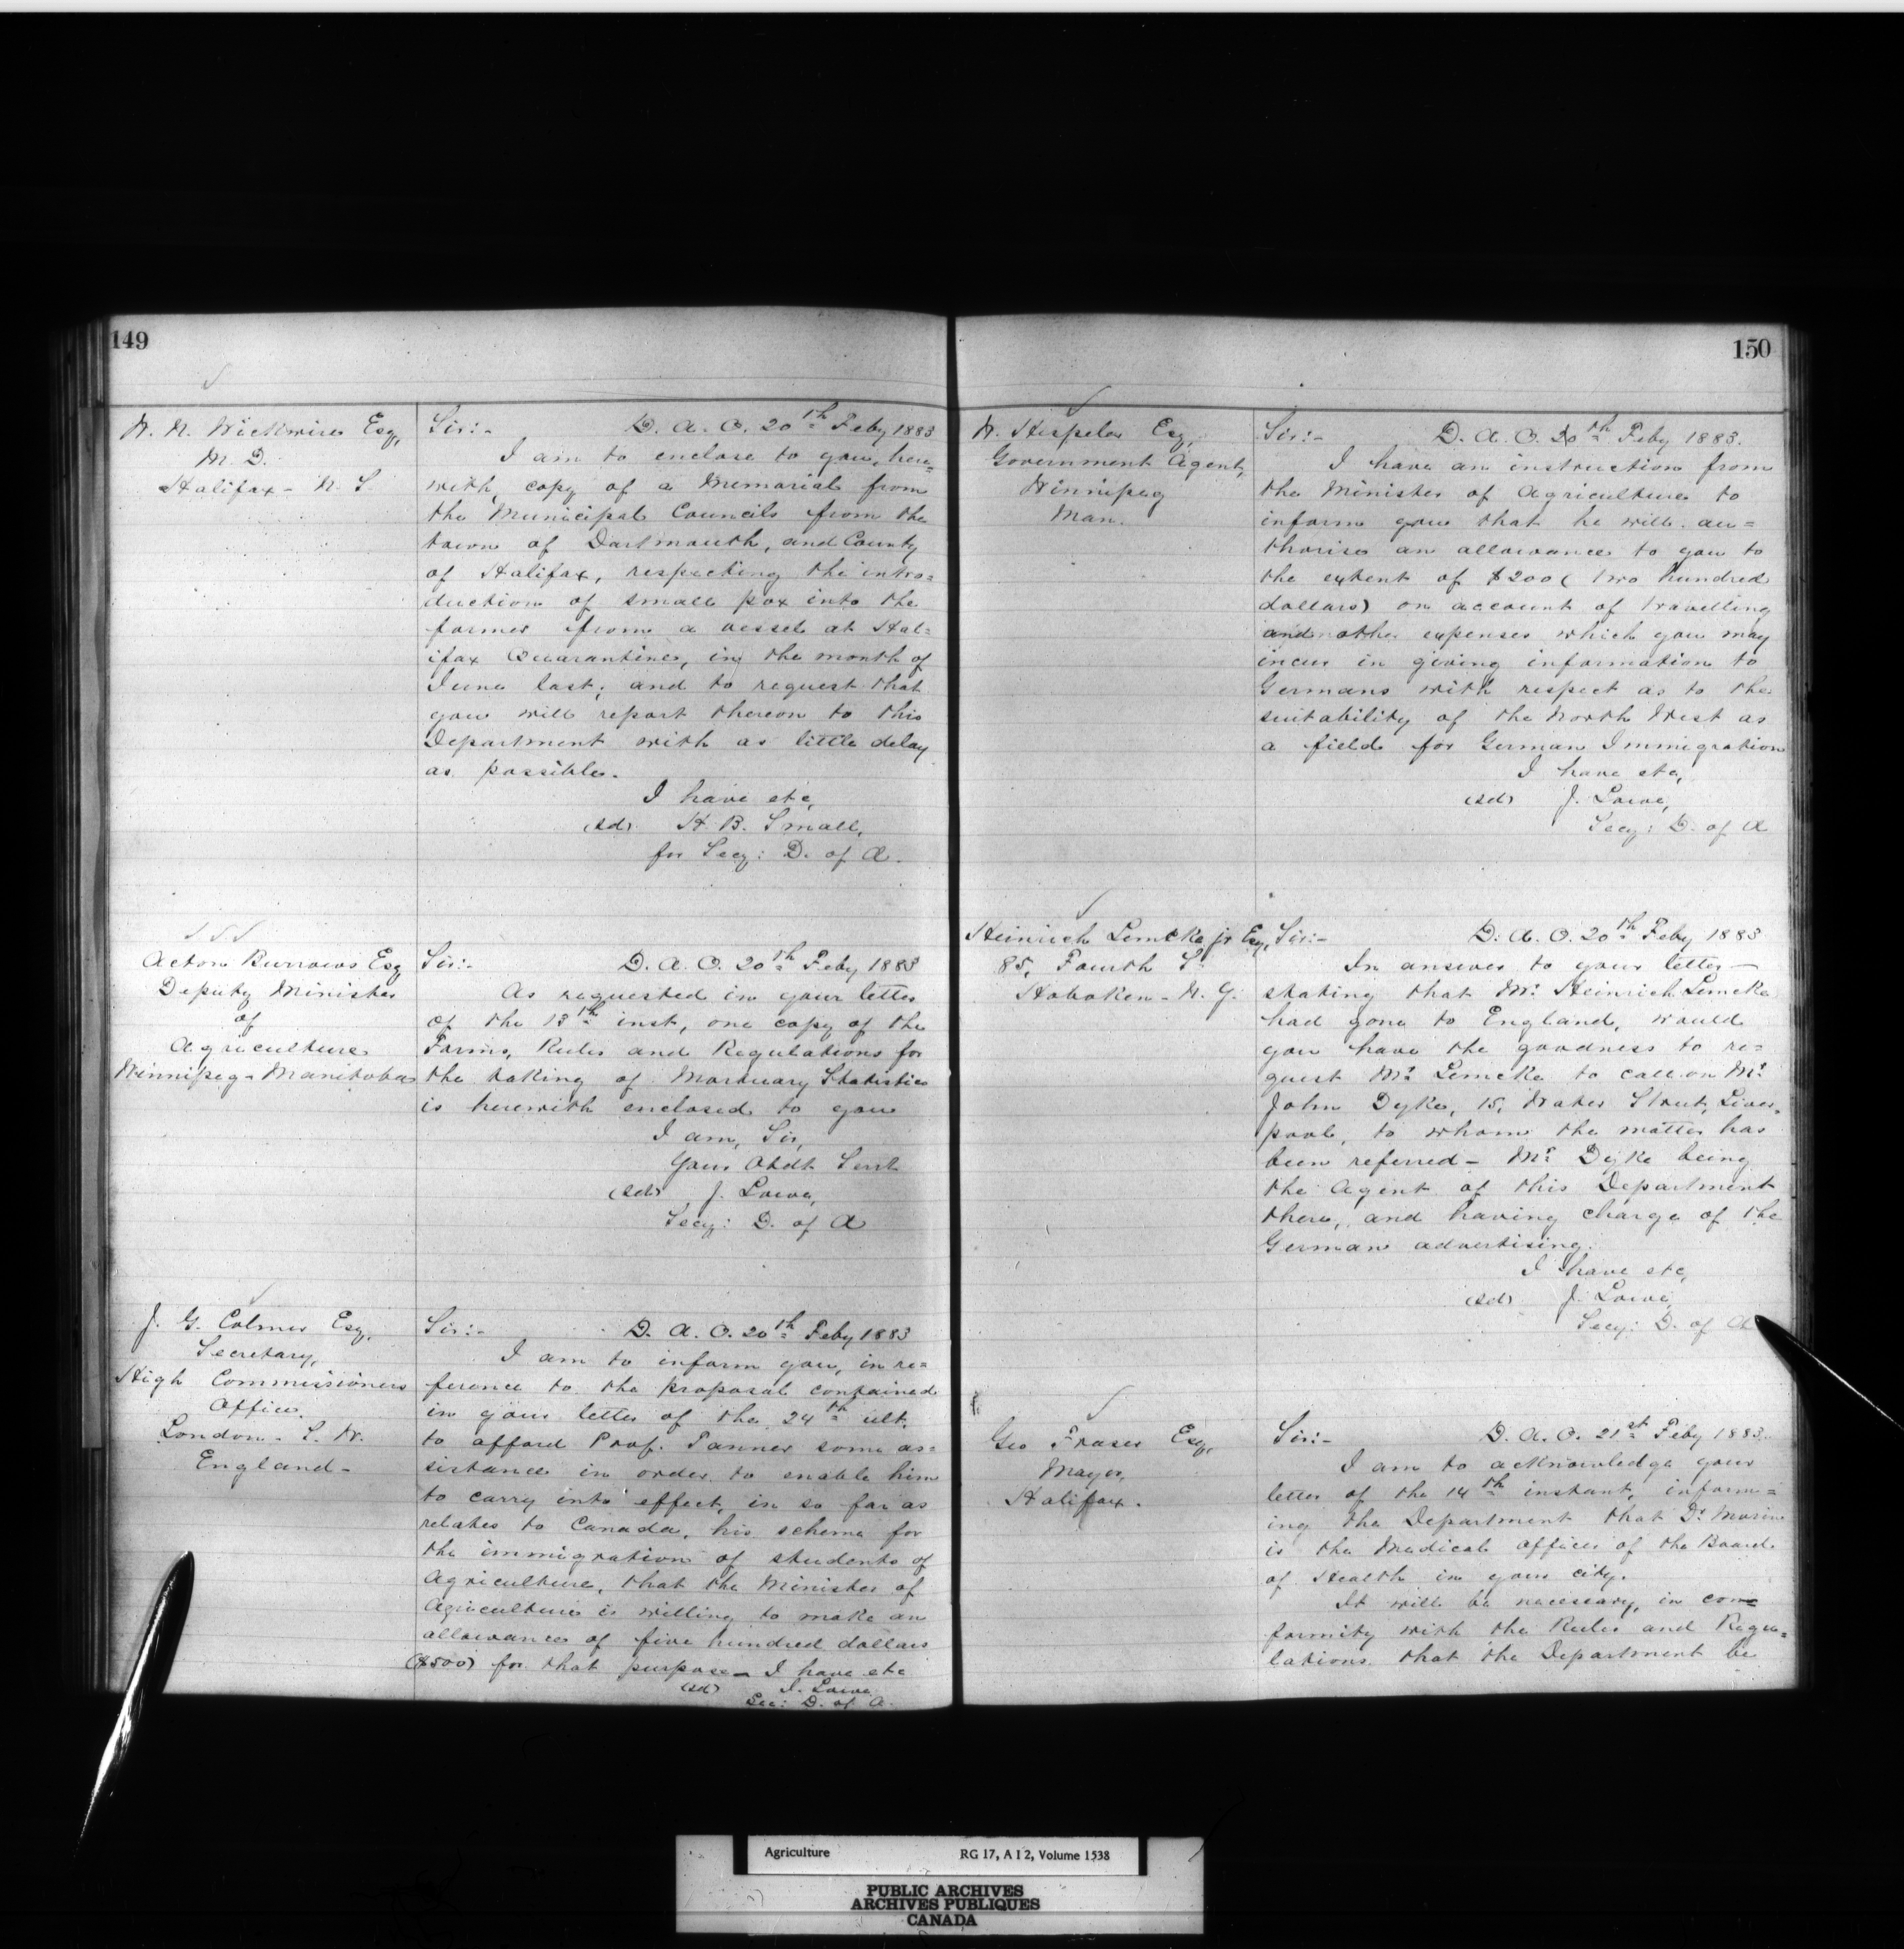 149
W. N. Wickwire Esq,
M. D.
Halifax - N. S.
Sir:- D. A. O. 20th Feby 1883
I am to enclose to you, here=
with, copy of a Memorial from
the Municipal Councils from the
town of Dartmouth, and County
of Halifax, respecting the intro=
duction of small pox into the
former from a vessel at Hal=
ifax Quarantine, in the month of
June last; and to request that
you will report thereon to this
Department with as little delay
as possible.
I have etc,
(sd) H. B. Small,
for Secy: D. of A.
Acton Burrows Esq
Deputy Minister
of
Agriculture
Winnipeg - Manitoba
Sir:- D. A. O. 20th Feby 1883
As requested in your letter
of the 13th inst, one copy of the
Forms, Rules and Regulations for
the taking of Mortuary Statistics
is herewith enclosed to you
I am, Sir,
Your Obdt Servt
(sd) J. Lowe,
Secy: D. of A
J. G. Colmer Esq,
Secretary,
High Commissioners
Office,
London - S. W.
England -
Sir:- D. A. O. 20th Feby 1883
I am to inform you, in re=
ference to the proposal contained
in your letter of the 24th ult.
to afford Prof. Tanner some as=
sistance in order to enable him
to carry into effect, in so far as
relates to Canada, his scheme for
the immigration of students of
Agriculture, that the Minister of
Agriculture is willing to make an
allowance of five hundred dollars
($500) for that purpose - I have etc
(sd) J. Lowe
Sec: D. of A.
150
W. Hespeler Esq,
Government Agent,
Winnipeg
Man.
Sir:- D. A. O. 20th Feby 1883.
I have an instruction from
the Minister of Agriculture to
inform you that he will au=
thorise an allowance to you to
the extent of $200 (two hundred
dollars) on account of travelling
and other expenses which you may
incur in giving information to
Germans with respect as to the
suitability of the North West as
a field for German Immigration
I have etc,
(sd) J. Lowe,
Secy: D. of A
Heinrich Lemcke jr Esq,
85, Fourth St
Hoboken - N. J.
Sir:- D. A. O. 20th Feby 1883
In answer to your letter -
stating that Mr. Heinrich Lemcke
had gone to England, would
you have the goodness to re=
quest Mr. Lemcke to call on Mr.
John Dyke, 15, Water Street, Liver=
pool, to whom the matter has
been referred - Mr. Dyke being
the Agent of this Department
there, and having charge of the
German advertising.
I have etc,
(sd) J. Lowe,
Secy: D. of A
Geo Fraser Esq,
Mayor,
Halifax.
Sir:- D. A. O. 21st Feby 1883.
I am to acknowledge your
letter of the 14th instant, inform=
ing the Department that Dr
is the Medical Officer of the Board
of Health in your city.
It will be necessary, in con=
formity with the Rules and Regu=
lations that the Department be
Agriculture RG 17, A I 2, Volume 1538
PUBLIC ARCHIVES
ARCHIVES PUBLIQUES
CANADA